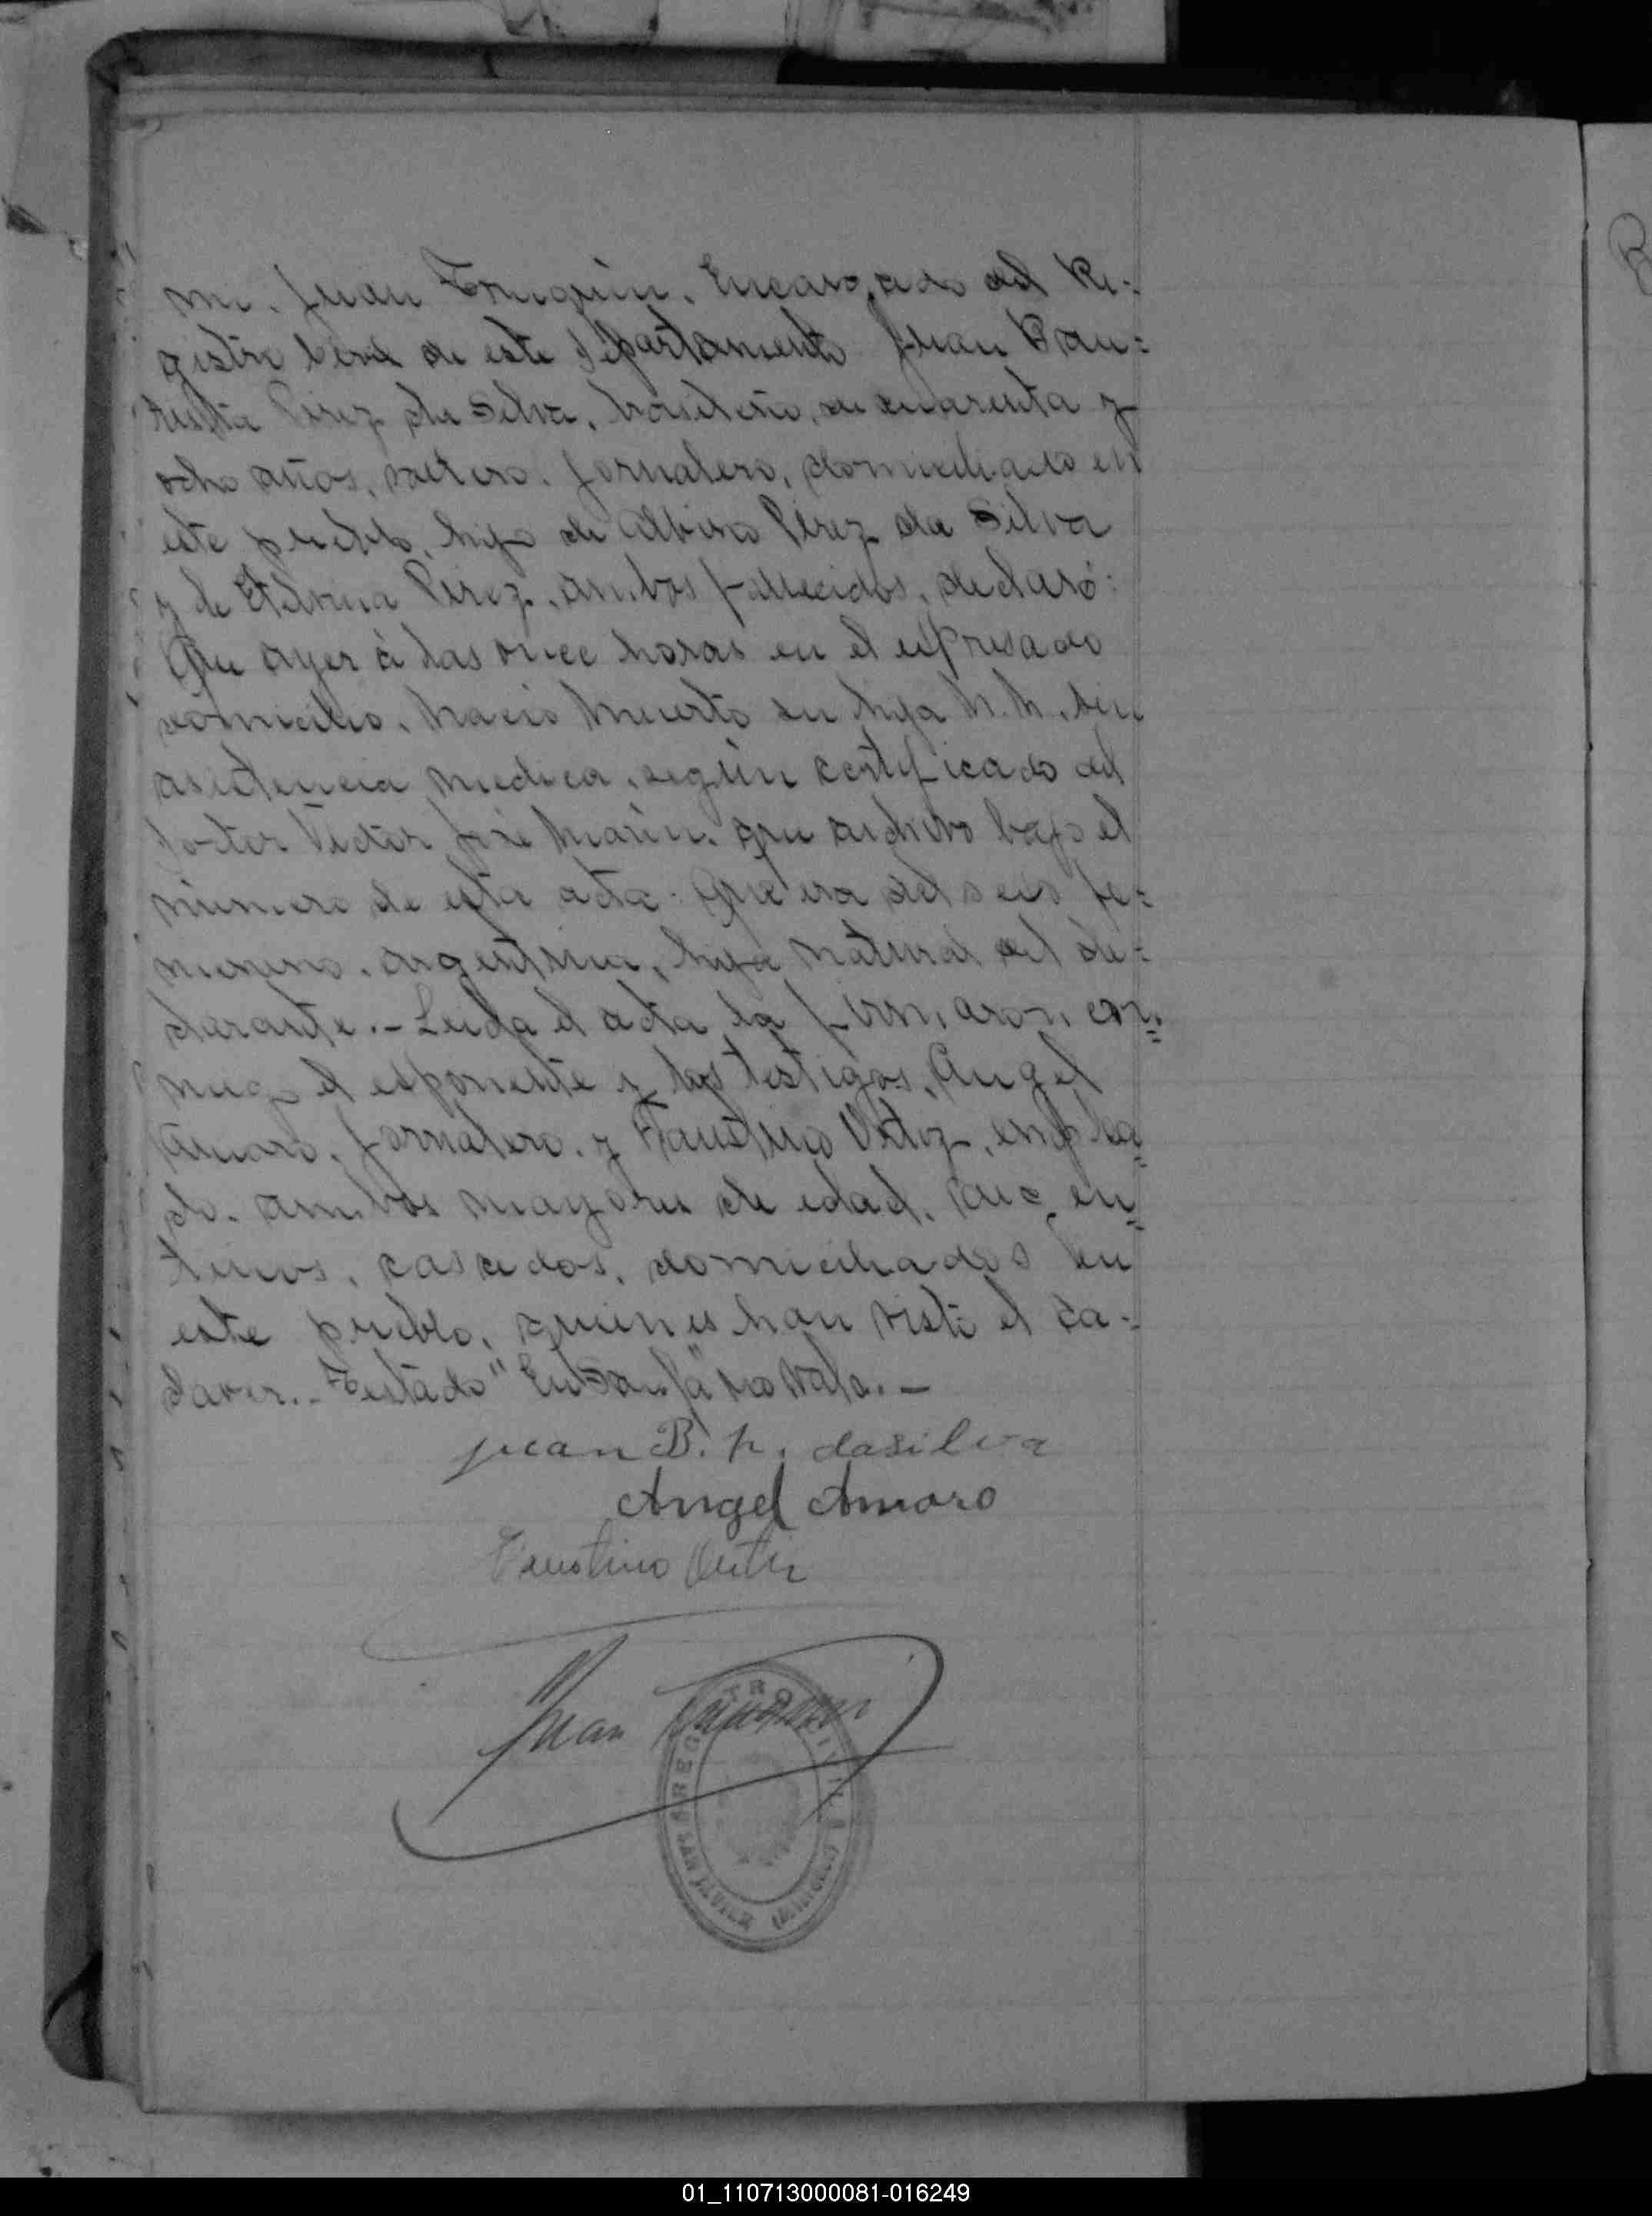 mi, Juan Tonquin, Encargado del Re=
gistro Civil de este Departamento Juan Bau=
tista Pérez da Silva, brasileño, de cuarenta y
ocho años, soltero, jornalero, domiciliado en
este pueblo, hijo de Albino Pérez da Silva
y de Etelvina Pérez, ambos fallecidos, declaró:
Que ayer á las once horas en el espresado
domicilio, nació muerto su hija N.N., sin
asistencia medica, según certificado del
Doctor Victor José Marin, que archivo bajo el
número de esta acta. Que era del sexo fe=
menino, argentina, hija natural del de=
clarante.- Leida el acta la firmaron con=
migo el esponente y los testigos, Angel
Amaro, jornalero, y Faustino Ortiz, emplea=
do, ambos mayores de edad,
casados, domiciliados en
este pueblo, quienes han visto el ca=
daver.- Testado no vale.-
Juan B. P. dasilva
Angel Amaro
Faustino Ortiz
Juan
REGISTRO CIVIL
SAN JAVIER (MISIONES)
01_110713000081-016249